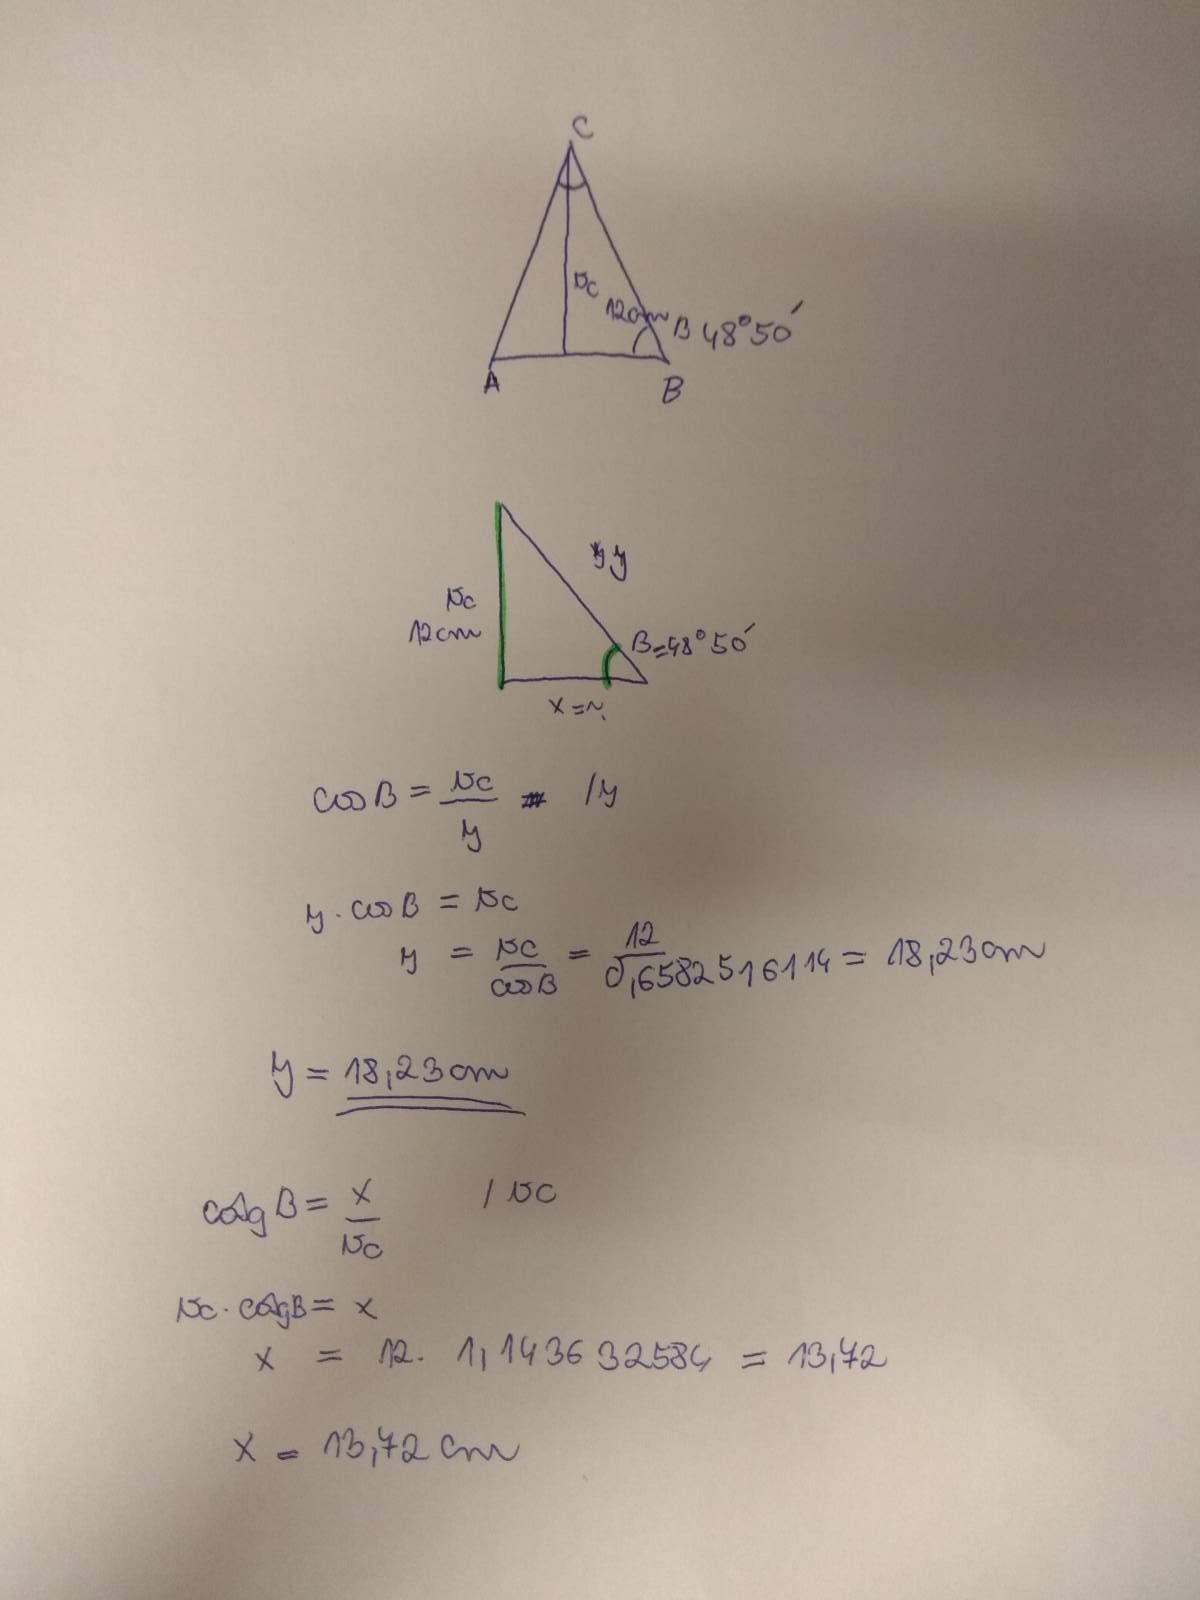 C
vc
12cm B 48°50´
A B
y
vc
12cm
B=48°50´
x=?
cos B = vc/y /y
y · cos B = vc
y = vc/cosB = 12/0,6582516114 = 18,23cm
y = 18,23cm
cotg B = x/vc / vc
vc · cotgB = x
x = 12 · 1,143632584 = 13,72
x = 13,72 cm